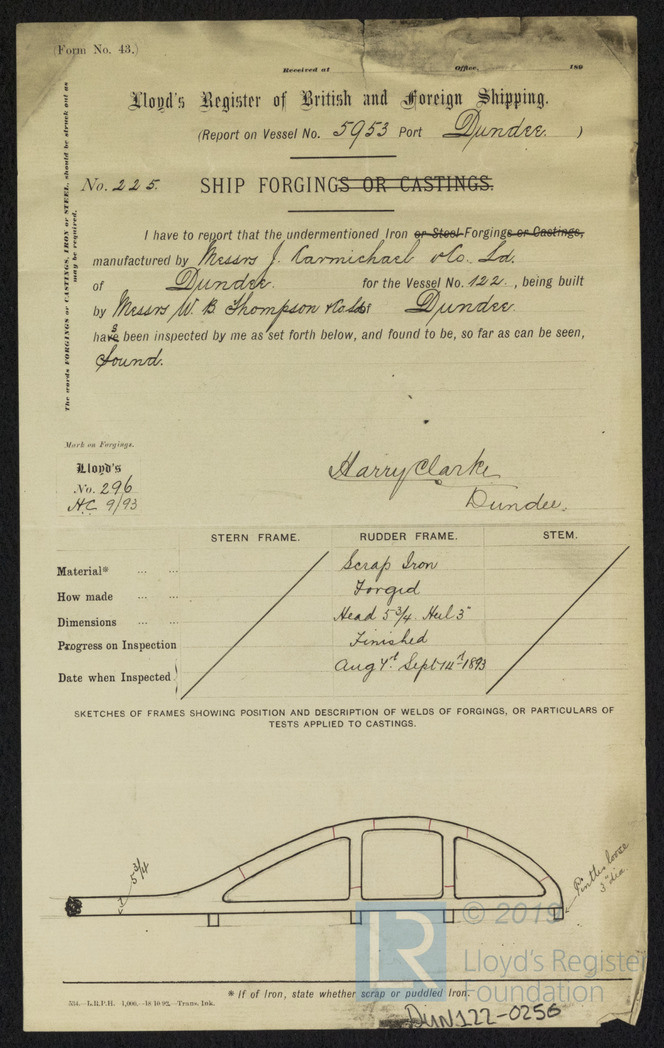 (Form No. 43.)
Received at Office, 189
Lloyd's Register of British and Foreign Shipping.
(Report on Vessel No. 5953 Port Dundee. )
No. 225. SHIP FORGINGS OR CASTINGS.
The words FORGINGS or CASTINGS, IRON or STEEL, should be struck out as
may be required.
I have to report that the undermentioned Iron or Steel Forgings or Castings,
manufactured by Messrs J. Carmichael & Co. Ld.
of Dundee. for the Vessel No. 122 , being built
by Messrs W. B Thompson & Co Ld at Dundee
has been inspected by me as set forth below, and found to be, so far as can be seen,
Sound.
Mark on Forgings.
Lloyd's
No. 296
H.C. 9/93
Harry Clarke
Dundee.
STERN FRAME. RUDDER FRAME. STEM.
Material* ... ... Scrap Iron
How made ... ... Forged
Dimensions ... ... Head 5 3/4 Heel 3"
Progress on Inspection Finished
Date when Inspected Aug Sept 14th 1893
SKETCHES OF FRAMES SHOWING POSITION AND DESCRIPTION OF WELDS OF FORGINGS, OR PARTICULARS OF
TESTS APPLIED TO CASTINGS.
5 3/4
Pintles loose
3" dia
© 2019
Lloyd's Register
Foundation
* If of Iron, state whether scrap or puddled Iron.
534.—L.R.P.H. 1,000.—18 10 92.—Trans. Ink.
DUN122-0256